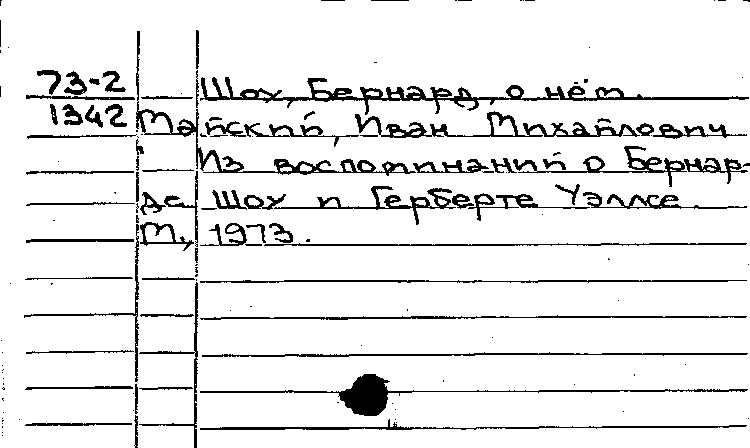 73-2 Шоу, Бернард, о нём.
1342 Майский, Иван Михайлович
Из воспоминаний о Бернар-
де Шоу и Герберте Уэллсе.
М., 1973.